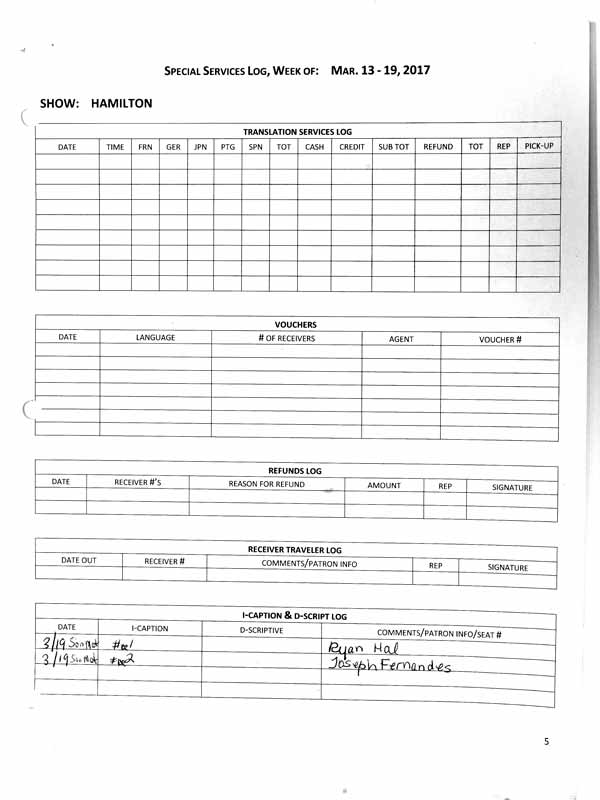 SPECIAL SERVICES LOG, WEEK OF: MAR. 13 - 19, 2017
SHOW: HAMILTON
TRANSLATION SERVICES LOG
DATE TIME FRN GER JPN PTG SPN TOT CASH CREDIT SUB TOT REFUND TOT REP PICK-UP
VOUCHERS
DATE LANGUAGE # OF RECEIVERS AGENT VOUCHER #
REFUNDS LOG
DATE RECEIVER #'S REASON FOR REFUND AMOUNT REP SIGNATURE
RECEIVER TRAVELER LOG
DATE OUT RECEIVER # COMMENTS/PATRON INFO REP SIGNATURE
I-CAPTION & D-SCRIPT LOG
DATE I-CAPTION D-SCRIPTIVE COMMENTS/PATRON INFO/SEAT #
3/19 Sun Mat #001 Ryan Hal
3/19 Sun Mat #002 Joseph Fernandes
5